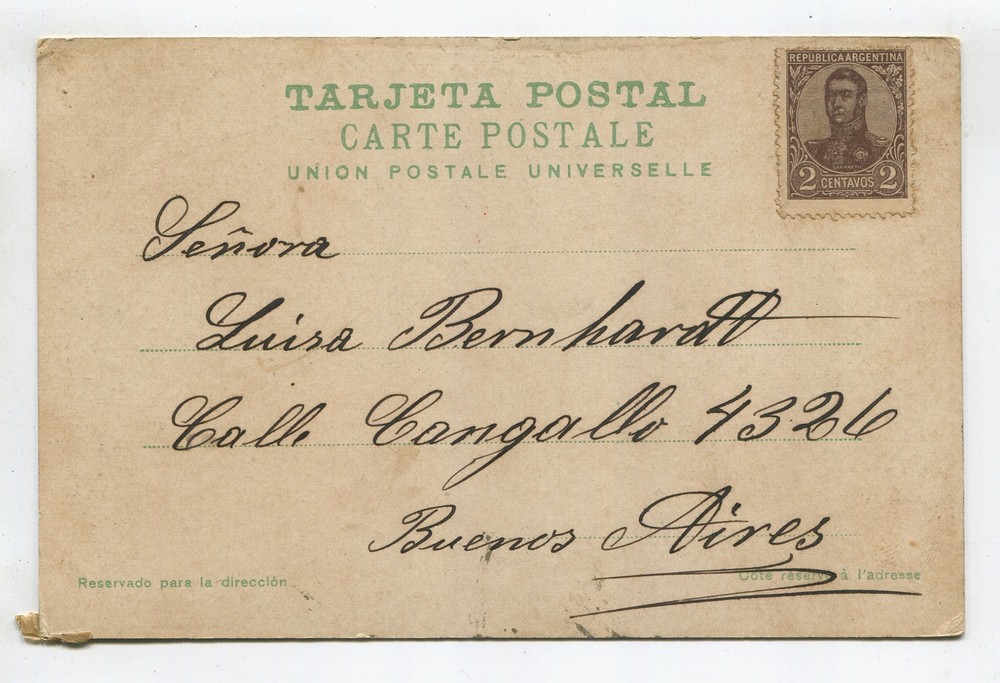 TARJETA POSTAL
CARTE POSTALE
UNION POSTALE UNIVERSELLE
REPUBLICA ARGENTINA
2 CENTAVOS 2
Señora
Luisa Bernhardt
Calle Cangallo 4326
Buenos Aires
Reservado para la dirección
Coté réservé à l'adresse